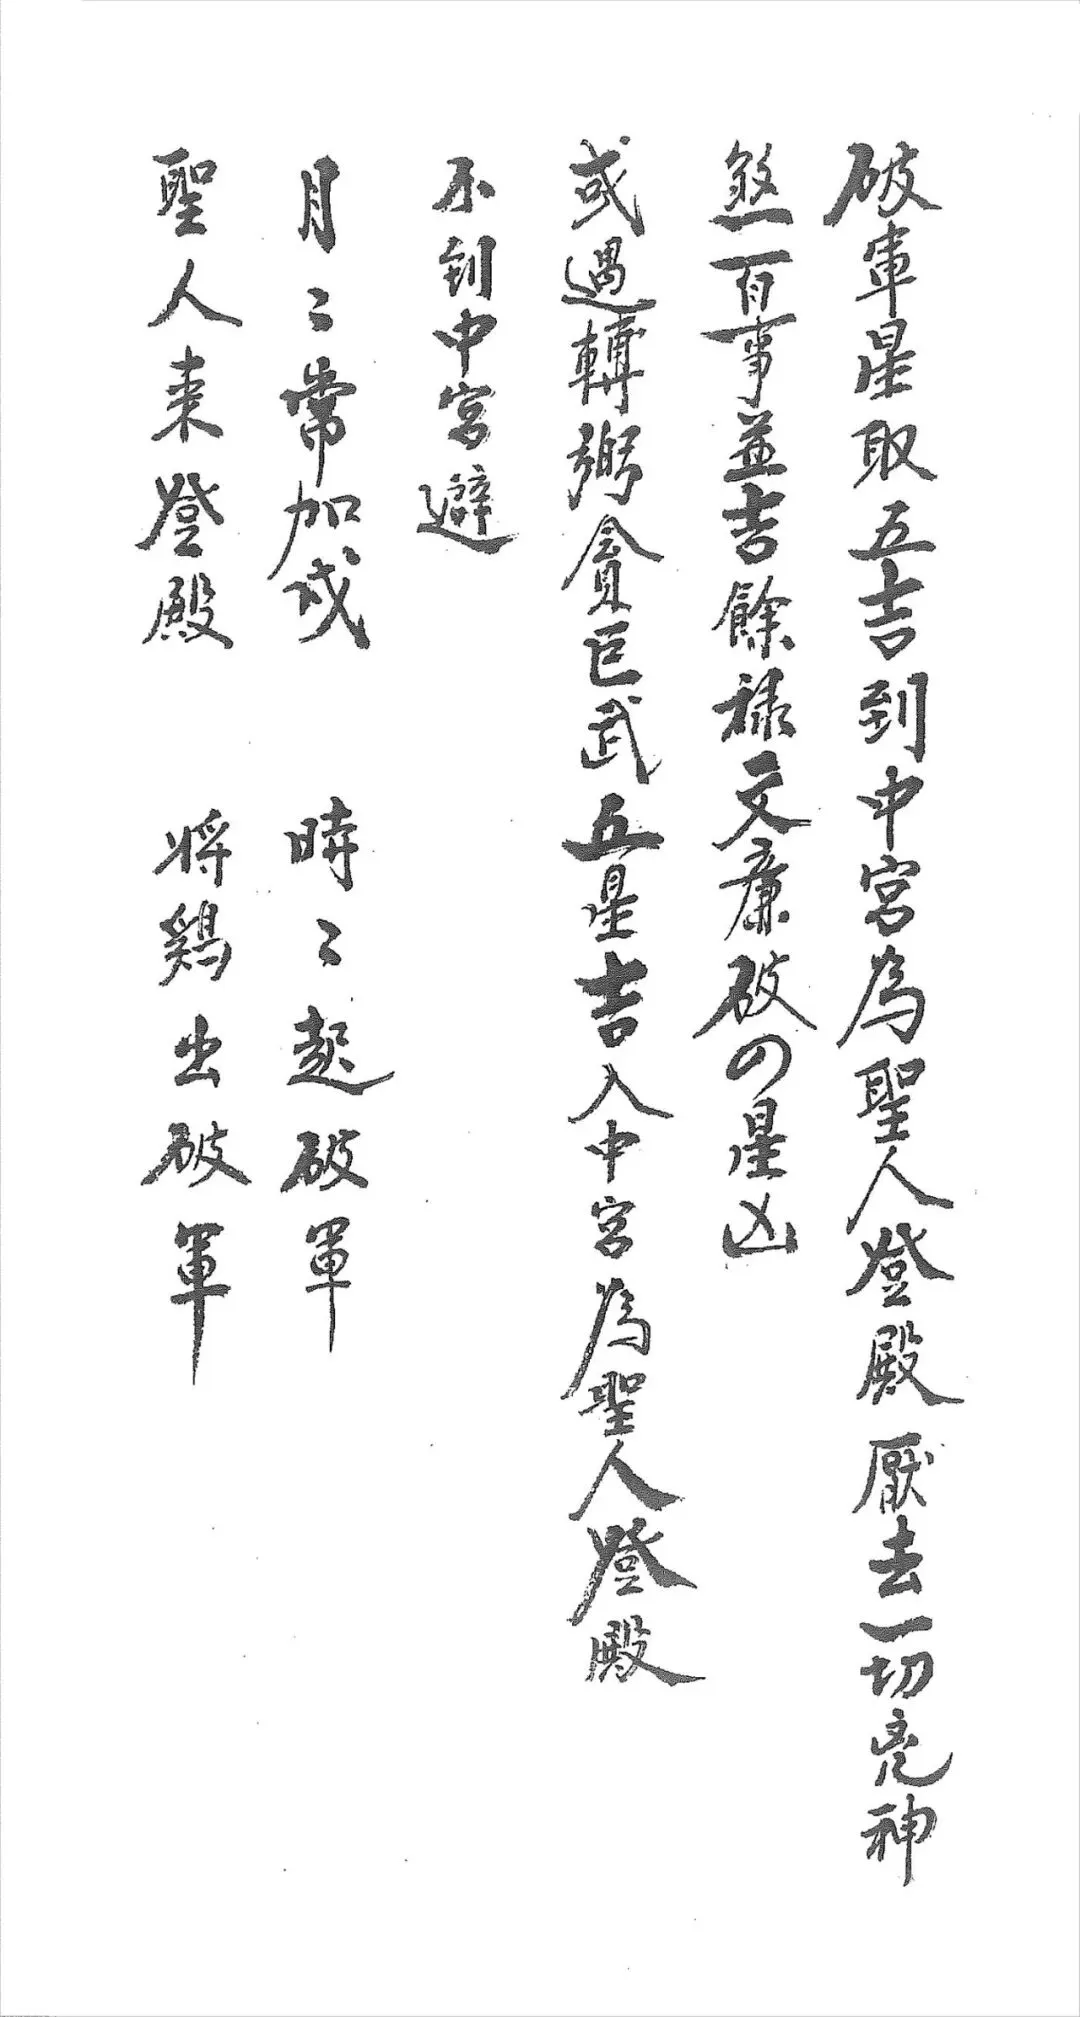 破軍星取五吉到中宮為聖人登殿厭去一切兇神
煞百事並吉餘祿文廉破の星凶
或遇輔弼貪巨武五星吉入中宮為聖人登殿
不到中宮避
月〻常加戌 時〻起破軍
聖人来登殿 将鶏出破軍